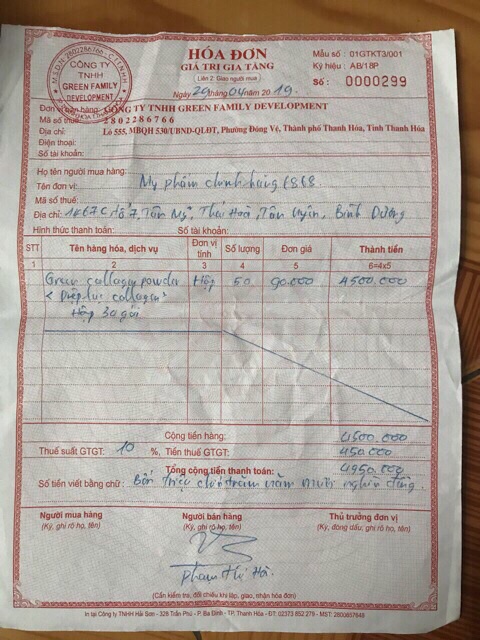 HÓA ĐƠN
GIÁ TRỊ GIA TĂNG
Liên 2: Giao người mua
Ngày 29 tháng 04 năm 2019
Mẫu số: 01GTKT3/001
Ký hiệu: AB/18P
Số: 0000299
M.S.D.N: 2802286766 - C.T.T.N.H.H
CÔNG TY
TNHH
GREEN FAMILY
DEVELOPMENT
Đơn vị bán hàng: CÔNG TY TNHH GREEN FAMILY DEVELOPMENT
Mã số thuế: 2802286766
Địa chỉ: Lô 555, MBQH 530/UBND-QLĐT, Phường Đông Vệ, Thành phố Thanh Hóa, Tỉnh Thanh Hóa
Điện thoại:
Số tài khoản:
Họ tên người mua hàng:
Tên đơn vị: Mỹ phẩm chính hãng 6868
Mã số thuế:
Địa chỉ: 1467C tổ 7, Tân Mỹ, Thái Hoà, Tân Uyên, Bình Dương
Hình thức thanh toán: Số tài khoản:
STT Tên hàng hóa, dịch vụ Đơn vị tính Số lượng Đơn giá Thành tiền
1 2 3 4 5 6=4x5
Green collagen powder Hộp 50 90.000 4500.000
< Diệp lục collagen >
Hộp 30 gói
Cộng tiền hàng: 4500.000
Thuế suất GTGT: 10 %, Tiền thuế GTGT: 450.000
Tổng cộng tiền thanh toán: 4950.000
Số tiền viết bằng chữ: Bốn triệu chín trăm năm mươi nghìn đồng.
Người mua hàng Người bán hàng Thủ trưởng đơn vị
(Ký, ghi rõ họ, tên) (Ký, ghi rõ họ, tên) (Ký, đóng dấu, ghi rõ họ, tên)
Phạm Thị Hà.
(Cần kiểm tra, đối chiếu khi lập, giao, nhận hóa đơn)
In tại Công ty TNHH Hải Sơn - 328 Trần Phú - P. Ba Đình - TP. Thanh Hóa - ĐT: 02373 852 278 - MST: 2800657848